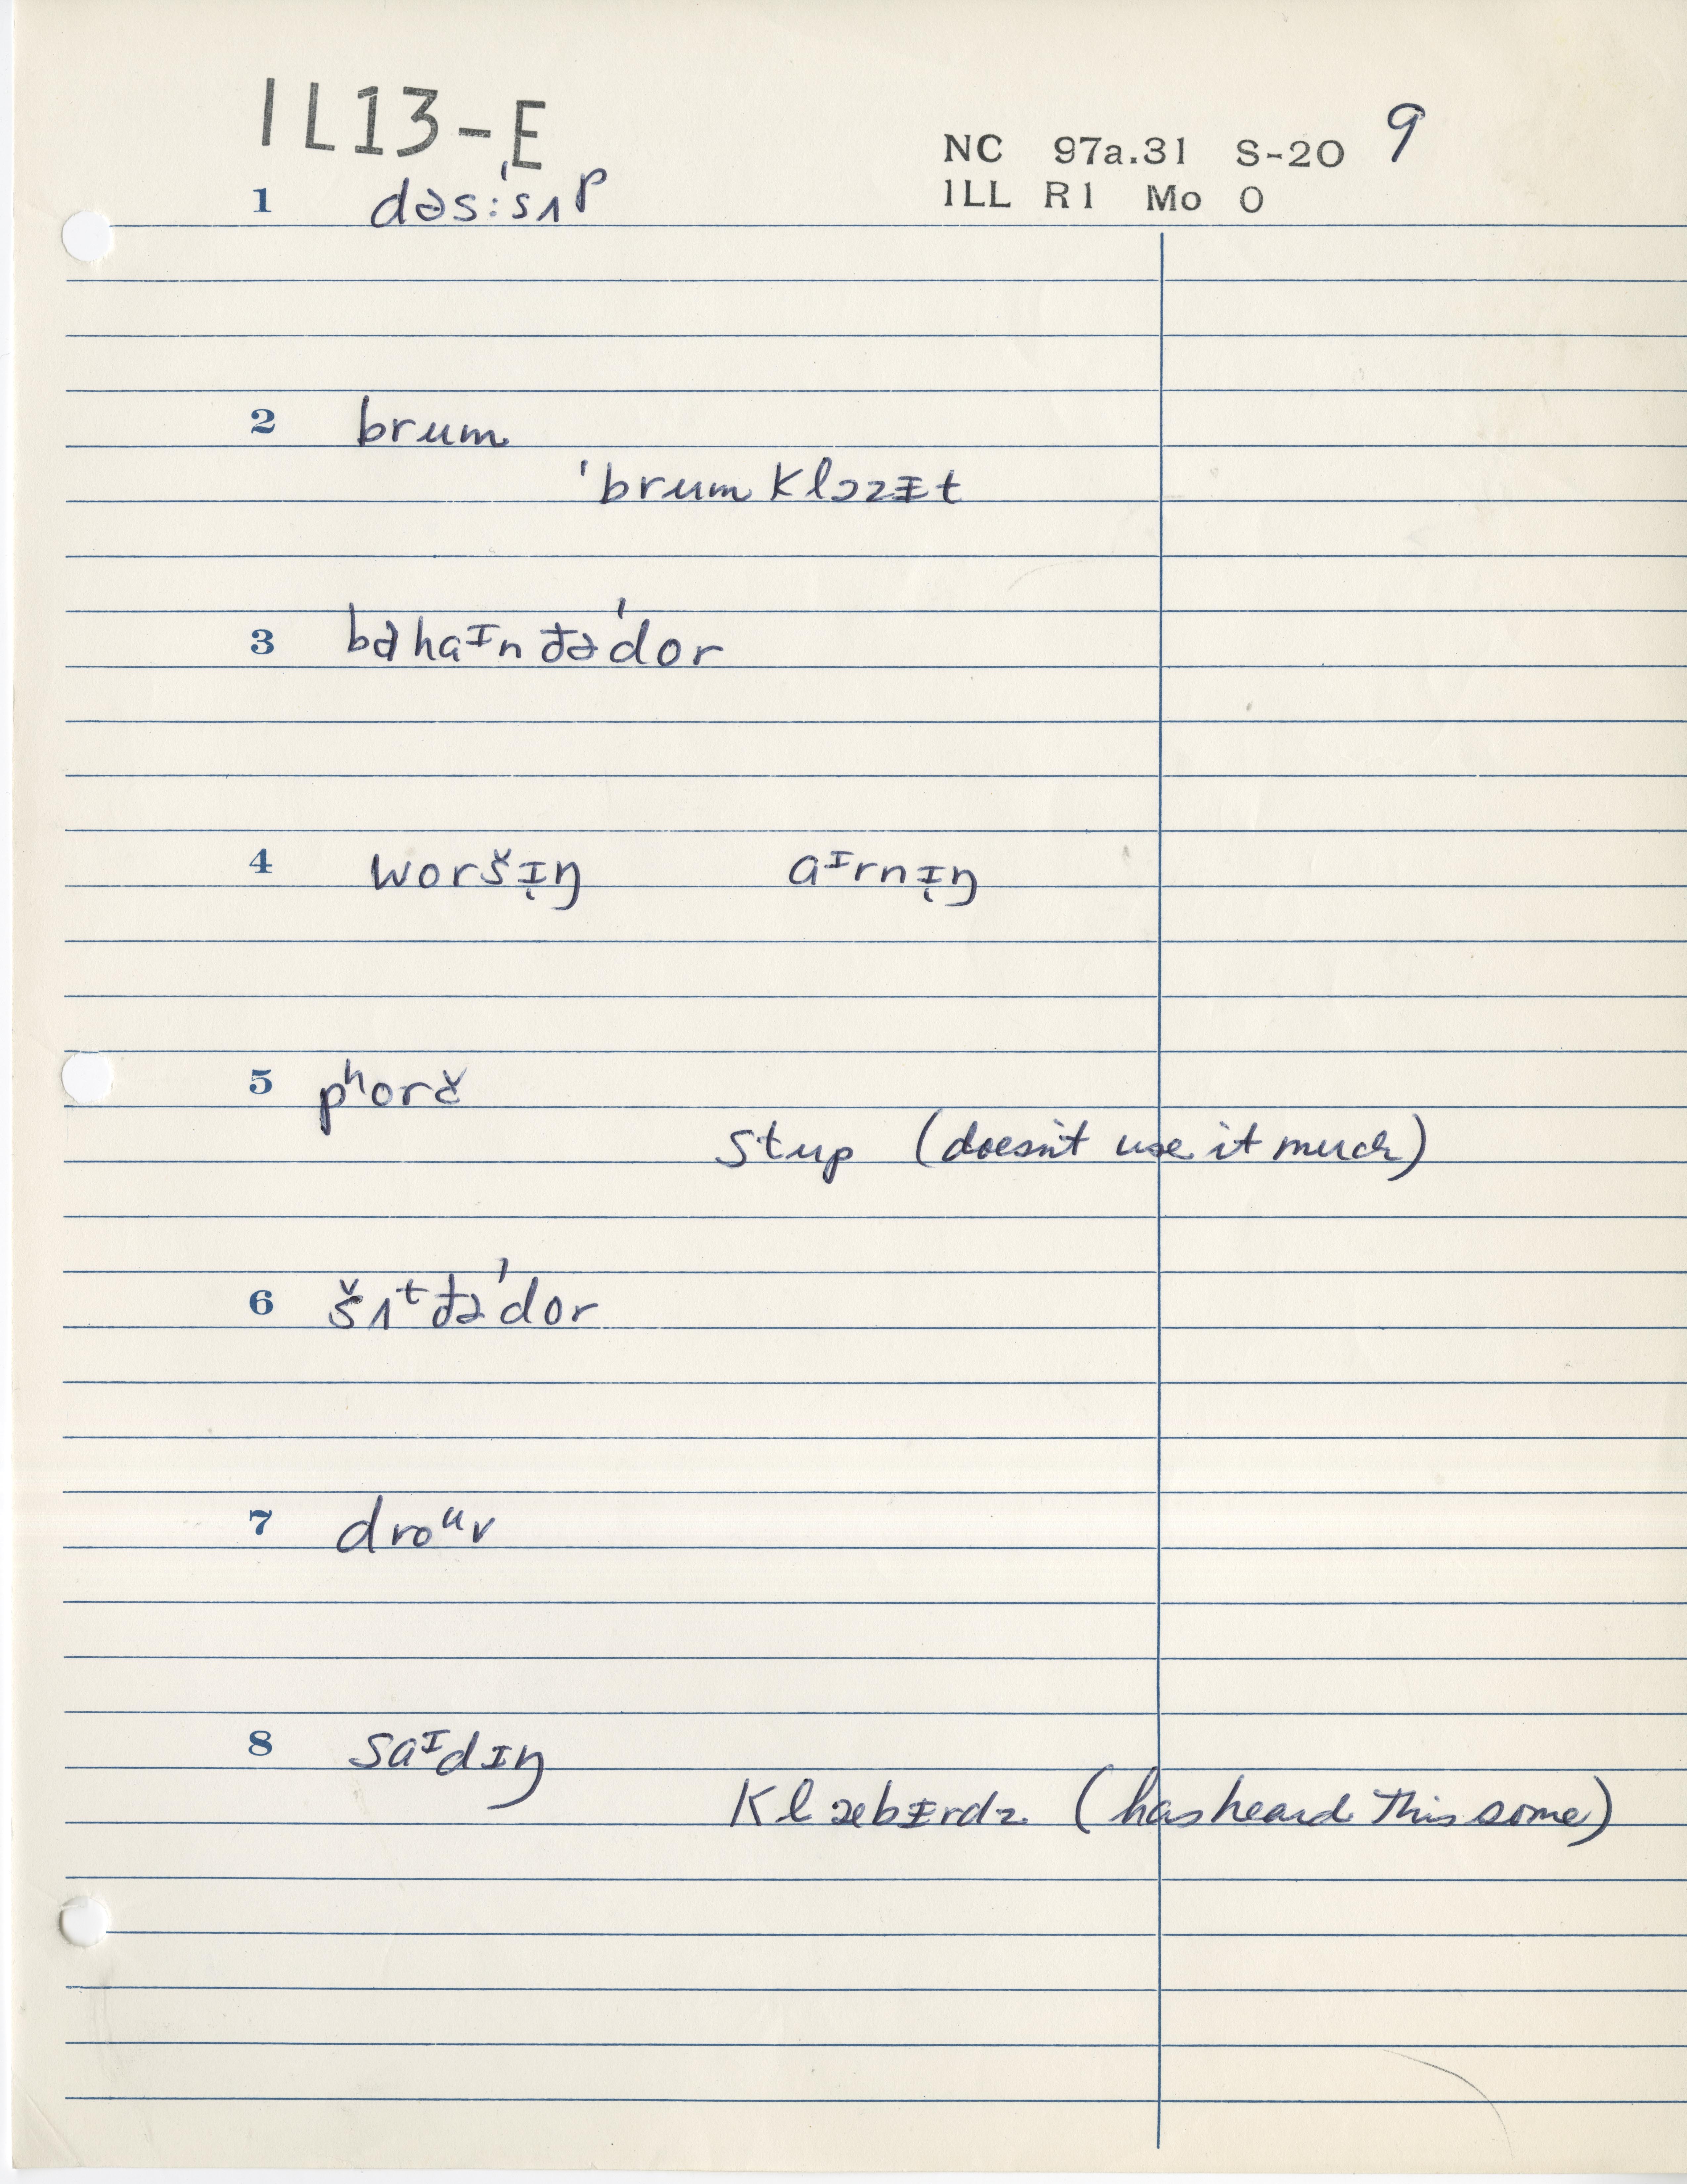 IL13-E
NC 97a.31 S-20 9
ILL R1 Mo 0
1 dəs:ˈsʌp
2 brum
ˈbrum klɔzɪt
3 bəhaᶦn đəˈdor
4 woršɪ̨ŋ aᶦrnɪ̨ŋ
5 pʰorč
stup (doesn't use it much)
6 šʌᵗđəˈdor
7 droᵘv
8 saᶦdɪŋ
klæbɪrdz (has heard this some)